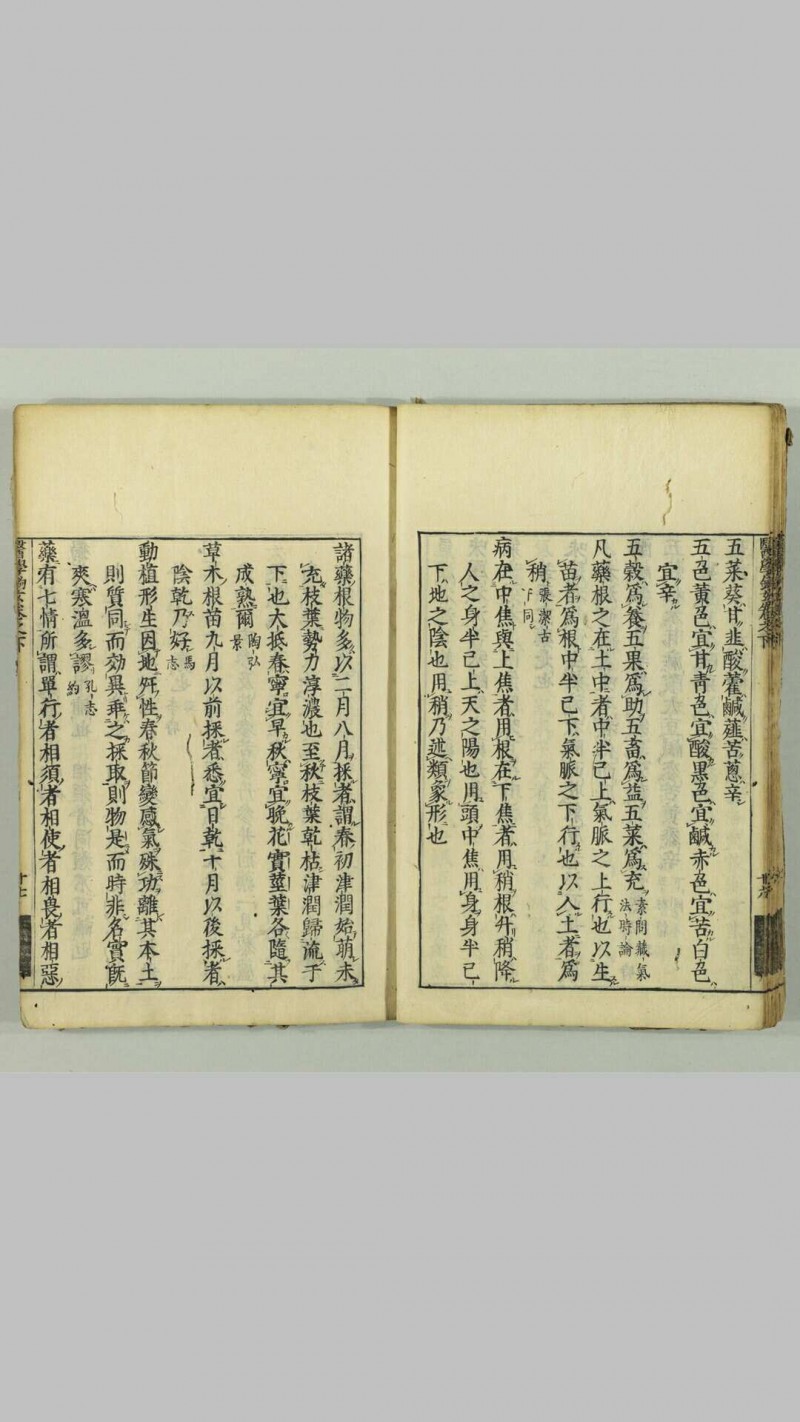 五菜葵甘韭酸藿鹹薤苦蔥辛
五色黃色宜甘青色宜酸黑色宜鹹赤色宜苦白色
宜辛
五穀爲養五果爲助五畜爲益五菜爲充素問藏氣法時論
凡藥根之在土中者中半已上氣脈之上行也以生
苗者爲根中半已下氣脈之下行也以入土者爲
稍張潔古下同
病在中焦與上焦者用根在下焦者用稍根升稍降
人之身半已上天之陽也用頭中焦用身身半已
下地之陰也用稍乃述類象形也
諸藥根物多以二月八月採者謂春初津潤始萌未
充枝葉勢力淳濃也至秋枝葉乾枯津潤歸流于
下也大抵春寧宜早秋寧宜晚花實莖葉各隨其
成熟爾陶弘景
草木根苗九月以前採者悉宜日乾十月以後採者
陰乾乃好馬志
動植形生因地舛性春秋節變感氣殊功離其本土
則質同而効異乖之採取則物是而時非名實旣
爽寒溫多謬孔志約
藥有七情所謂單行者相須者相使者相畏者相惡